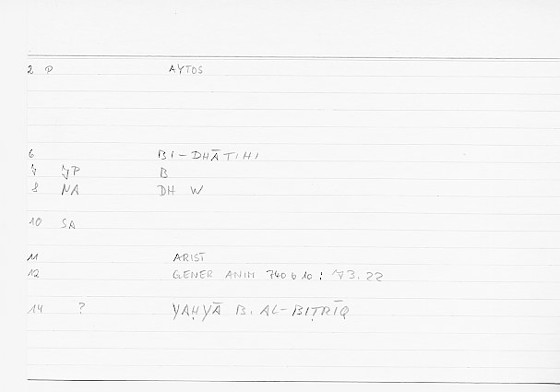 2 P AYTOS
6 BI-DHĀTIHI
7 JP B
8 NA DH W
10 SA
11 ARIST
12 GENER ANIM 740 b 10 : 73.22
14 ? YAḤYĀ B. AL-BIṬRĪQ